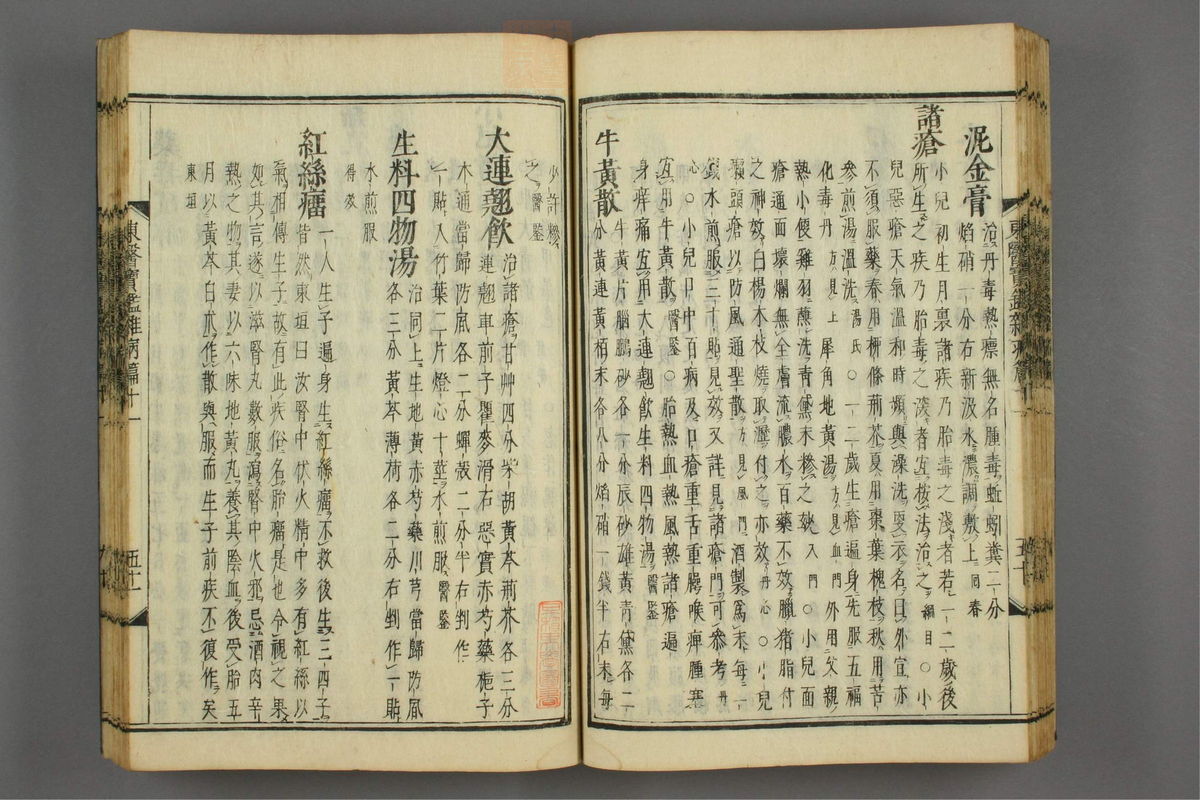 泥金膏 治丹毒熱瘭無名腫毒蚯蚓糞二分
焰硝一分右新汲水濃調敷上 回春
諸瘡 小兒初生月裏諸疾乃胎毒之淺者若一二歲後
所生之疾乃胎毒之深者宜按法治之 綱目 〇小
兒惡瘡天氣溫和時頻與澡洗更衣名曰外宣亦
不須服藥春用柳條荊芥夏用棗葉槐枝秋用苦
參煎湯溫洗 湯氏 〇一二歲生瘡遍身先服五福
化毒丹 方見上 犀角地黃湯 方見血門 外用父親
熱小便雞羽蘸洗青黛末糝之 入門 〇小兒面
瘡通面壞爛無全膚流膿水百藥不效臘猪脂付
之神效白楊木枝燒取瀝付之亦效 丹心 〇小兒
癩頭瘡以防風通聖散 方見風門 酒製爲末每一
錢水煎服三十貼見效又詳見諸瘡門可參考 丹
心 〇小兒口中百病及口瘡重舌重腭喉痺腫塞
宜用牛黃散 醫鑒 〇胎熱血熱風熱諸瘡遍
身痒痛宜用大連翹飮生料四物湯 醫鑒
牛黃散 牛黃片腦鵬砂各一分辰砂雄黃青黛各二
分黃連黃栢末各八分焰硝一錢半右末每
少許糝
之 醫鑒
大連翹飮 治諸瘡甘艸四分柴胡黃芩荊芥各三分
連翹車前子瞿麥滑石惡實赤芍藥梔子
木通當歸防風各二分蟬殼二分半右剉作
一貼入竹葉二片燈心十莖水煎服 醫鑒
生料四物湯 治同上生地黃赤芍藥川芎當歸防風
各三分黃芩薄荷各二分右剉作一貼
水煎服
得效
紅絲瘤 一人生子遍身生紅絲瘤不救後生三四子
皆然東垣曰汝腎中伏火精中多有紅絲以
氣相傳生子故有此疾俗名胎瘤是也令視之果
如其言遂以滋腎丸數服瀉腎中火邪忌酒肉辛
熱之物其妻以六味地黃丸養其陰血後受胎五
月以黃芩白朮作散與服而生子前疾不復作矣
東垣
東醫寶鑑雜病篇十一
五十
東醫寶鑑雜病篇十一
五十一